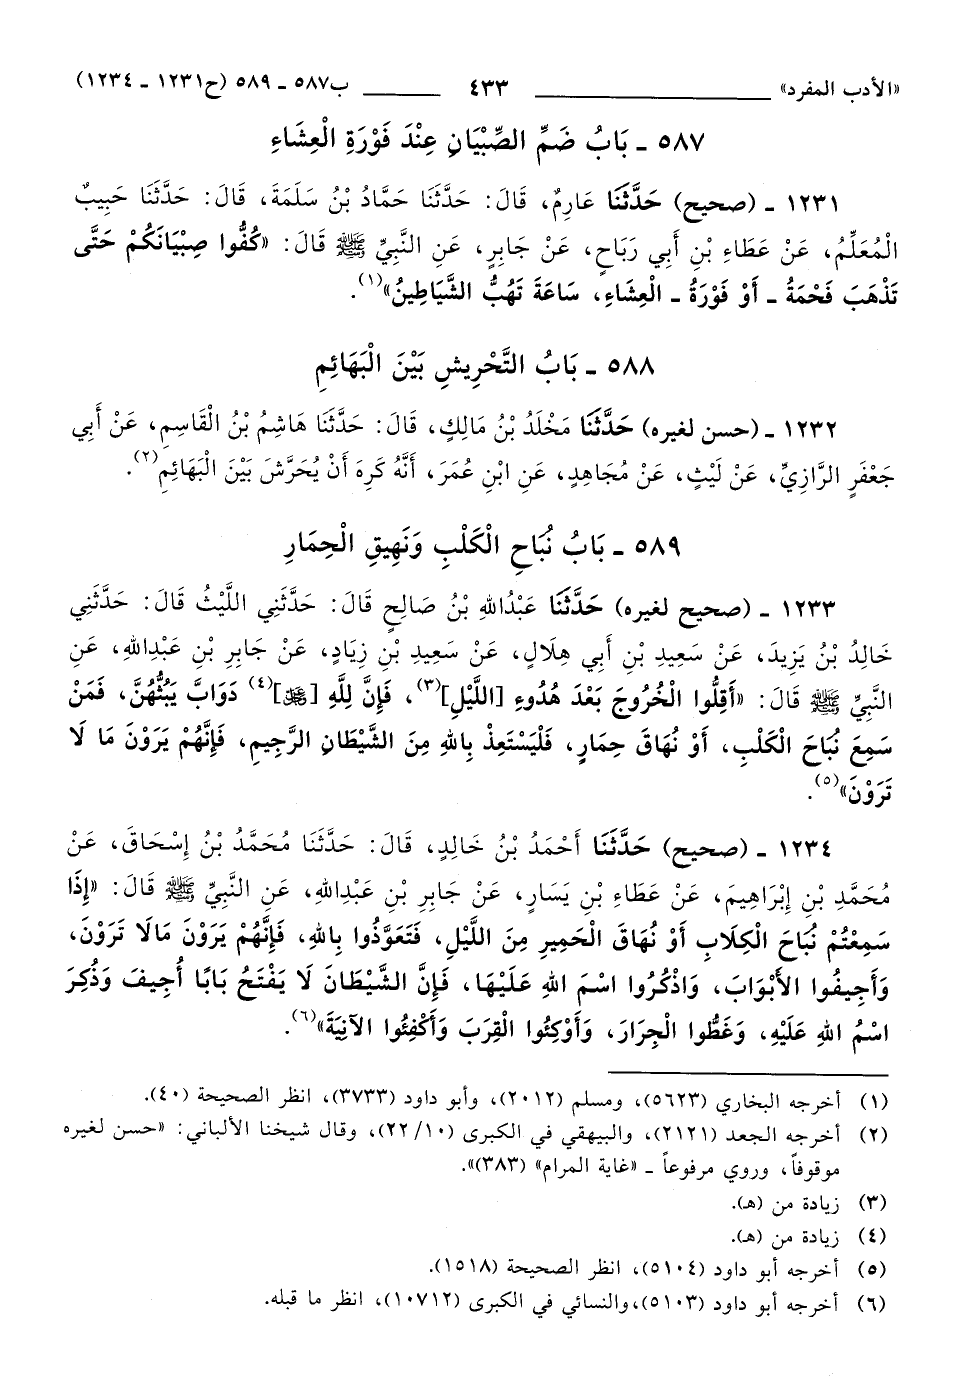 «الأدب المفرد» ٤٣٣ ب٥٨٧ ـ ٥٨٩ (ح١٢٣١ ـ ١٢٣٤)
٥٨٧ ـ بَابُ ضَمِّ الصِّبْيَانِ عِنْدَ فَوْرَةِ الْعِشَاءِ
١٢٣١ ـ (صحيح) حَدَّثَنَا عَارِمٌ، قَالَ: حَدَّثَنَا حَمَّادُ بْنُ سَلَمَةَ، قَالَ: حَدَّثَنَا حَبِيبٌ
الْمُعَلِّمُ، عَنْ عَطَاءِ بْنِ أَبِي رَبَاحٍ، عَنْ جَابِرٍ، عَنِ النَّبِيِّ ﷺ قَالَ: «كُفُّوا صِبْيَانَكُمْ حَتَّى
تَذْهَبَ فَحْمَةُ ـ أَوْ فَوْرَةُ ـ الْعِشَاءِ، سَاعَةَ تَهُبُّ الشَّيَاطِينُ»(١).
٥٨٨ ـ بَابُ التَّحْرِيشِ بَيْنَ الْبَهَائِمِ
١٢٣٢ ـ (حسن لغيره) حَدَّثَنَا مَخْلَدُ بْنُ مَالِكٍ، قَالَ: حَدَّثَنَا هَاشِمُ بْنُ الْقَاسِمِ، عَنْ أَبِي
جَعْفَرٍ الرَّازِيِّ، عَنْ لَيْثٍ، عَنْ مُجَاهِدٍ، عَنِ ابْنِ عُمَرَ، أَنَّهُ كَرِهَ أَنْ يُحَرَّشَ بَيْنَ الْبَهَائِمِ(٢).
٥٨٩ ـ بَابُ نُبَاحِ الْكَلْبِ وَنَهِيقِ الْحِمَارِ
١٢٣٣ ـ (صحيح لغيره) حَدَّثَنَا عَبْدُاللهِ بْنُ صَالِحٍ قَالَ: حَدَّثَنِي اللَّيْثُ قَالَ: حَدَّثَنِي
خَالِدُ بْنُ يَزِيدَ، عَنْ سَعِيدِ بْنِ أَبِي هِلَالٍ، عَنْ سَعِيدِ بْنِ زِيَادٍ، عَنْ جَابِرِ بْنِ عَبْدِاللهِ، عَنِ
النَّبِيِّ ﷺ قَالَ: «أَقِلُّوا الْخُرُوجَ بَعْدَ هُدُوءِ [اللَّيْلِ](٣)، فَإِنَّ لِلَّهِ [ﷻ](٤) دَوَابَّ يَبُثُّهُنَّ، فَمَنْ
سَمِعَ نُبَاحَ الْكَلْبِ، أَوْ نُهَاقَ حِمَارٍ، فَلْيَسْتَعِذْ بِاللهِ مِنَ الشَّيْطَانِ الرَّجِيمِ، فَإِنَّهُمْ يَرَوْنَ مَا لَا
تَرَوْنَ»(٥).
١٢٣٤ ـ (صحيح) حَدَّثَنَا أَحْمَدُ بْنُ خَالِدٍ، قَالَ: حَدَّثَنَا مُحَمَّدُ بْنُ إِسْحَاقَ، عَنْ
مُحَمَّدِ بْنِ إِبْرَاهِيمَ، عَنْ عَطَاءِ بْنِ يَسَارٍ، عَنْ جَابِرِ بْنِ عَبْدِاللهِ، عَنِ النَّبِيِّ ﷺ قَالَ: «إِذَا
سَمِعْتُمْ نُبَاحَ الْكِلَابِ أَوْ نُهَاقَ الْحَمِيرِ مِنَ اللَّيْلِ، فَتَعَوَّذُوا بِاللهِ، فَإِنَّهُمْ يَرَوْنَ مَالَا تَرَوْنَ،
وَأَجِيفُوا الأَبْوَابَ، وَاذْكُرُوا اسْمَ اللهِ عَلَيْهَا، فَإِنَّ الشَّيْطَانَ لَا يَفْتَحُ بَابًا أُجِيفَ وَذُكِرَ
اسْمُ اللهِ عَلَيْهِ، وَغَطُّوا الْجِرَارَ، وَأَوْكِئُوا الْقِرَبَ وَأَكْفِئُوا الآنِيَةَ»(٦).
(١) أخرجه البخاري (٥٦٢٣)، ومسلم (٢٠١٢)، وأبو داود (٣٧٣٣)، انظر الصحيحة (٤٠).
(٢) أخرجه الجعد (٢١٢١)، والبيهقي في الكبرى (٢٢/١٠)، وقال شيخنا الألباني: «حسن لغيره
موقوفاً، وروي مرفوعاً ـ «غاية المرام» (٣٨٣)».
(٣) زيادة من (هـ).
(٤) زيادة من (هـ).
(٥) أخرجه أبو داود (٥١٠٤)، انظر الصحيحة (١٥١٨).
(٦) أخرجه أبو داود (٥١٠٣)،والنسائي في الكبرى (١٠٧١٢)، انظر ما قبله.